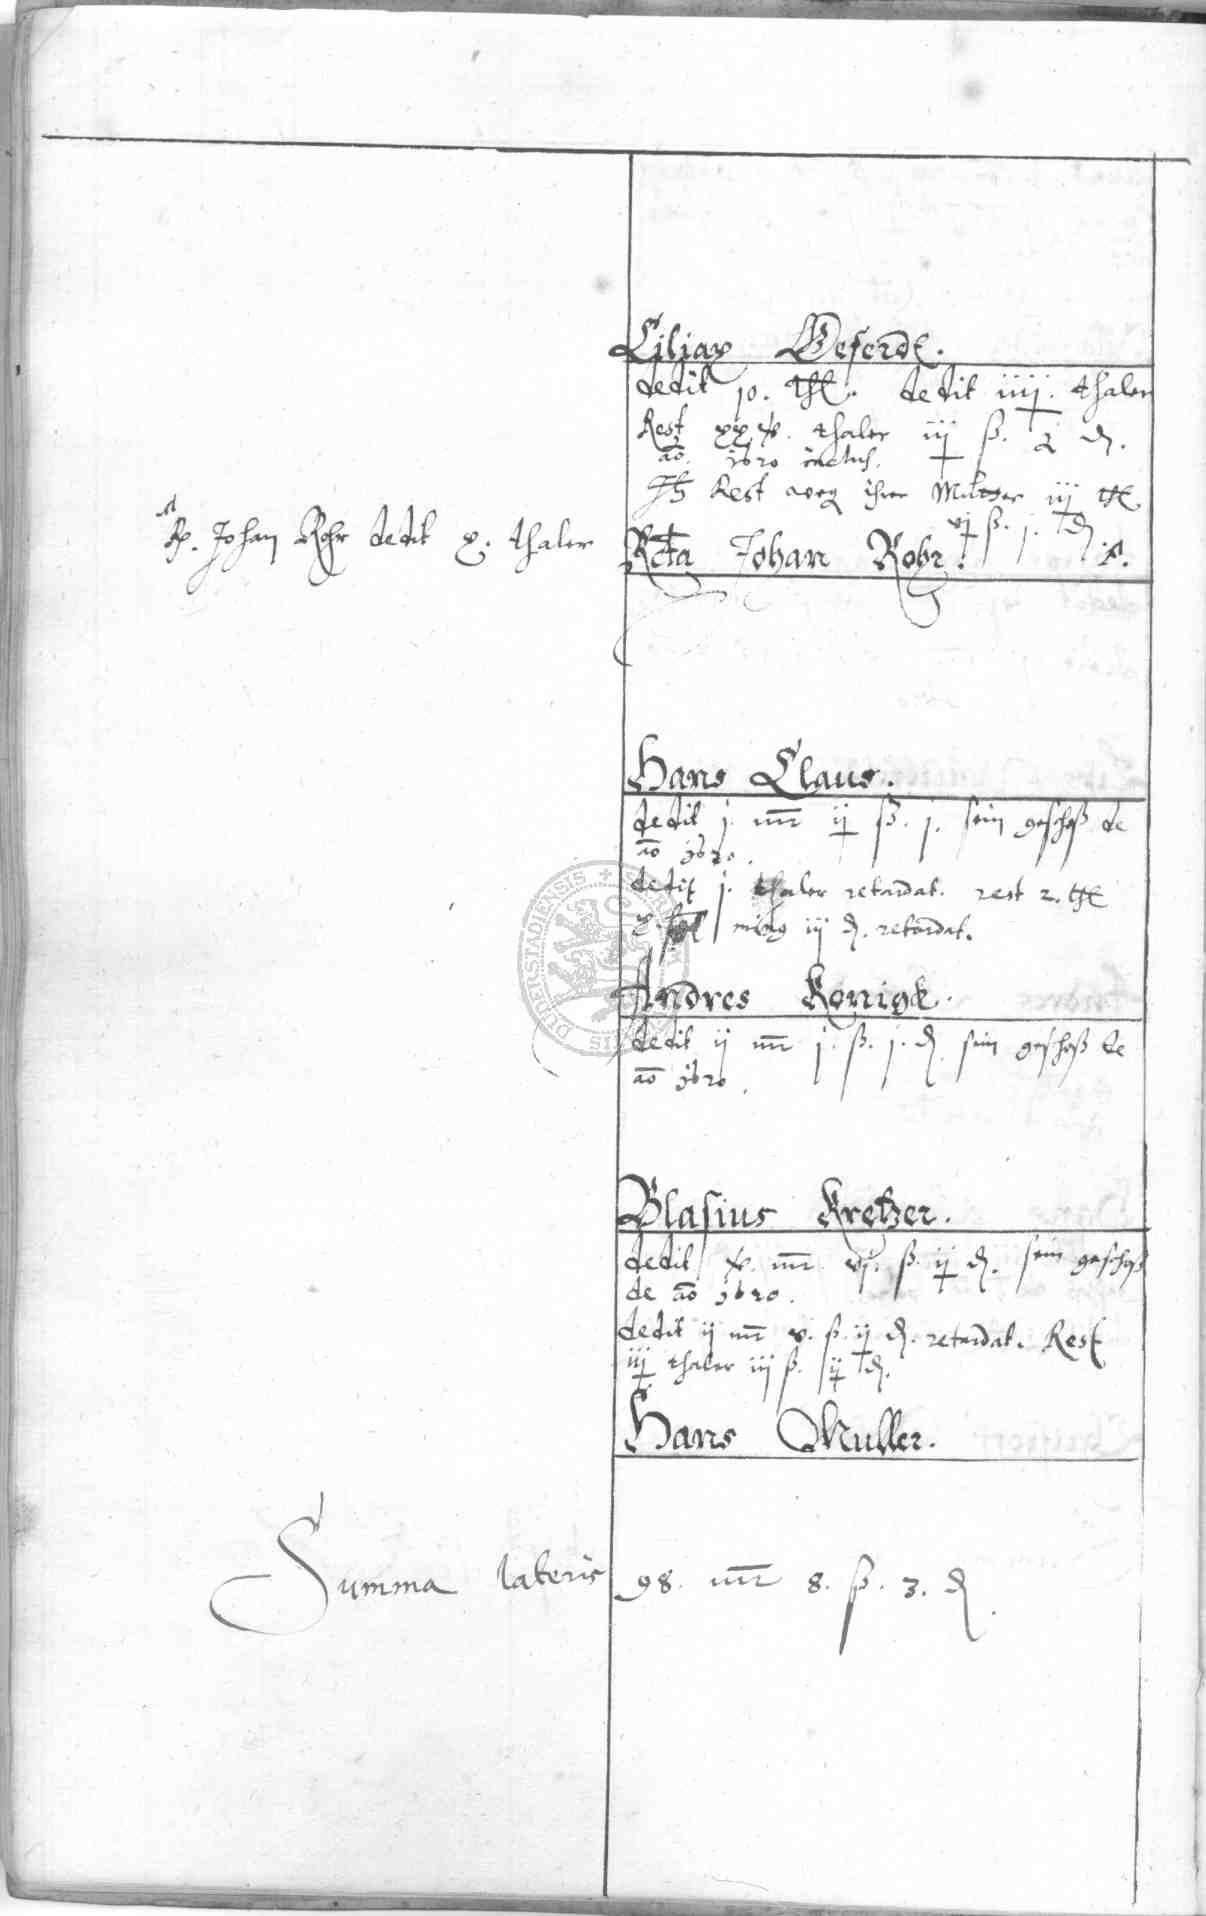 Ciliax Geserdt.
dedit 10. thl. dedit iiij. thaler
Rest xxx. thaler iij ß. ₰.
ao. 1620 inclus.
Rest weg ihrer Mutter iij thl
vj ß. j. ₰.
R. Johan Rohr dedit x. thaler
Rcta Johan Rohr.
Hans Claus.
dedit j. mr ij ß. j. sein geschoß de
ao 1620.
dedit j. thaler retardat. rest 2. thl
iij ₰. retardat.
Andres Konigk.
dedit ij mr j. ß. j. ₰ sein geschoß de
ao 1620.
Blasius Kretzer.
dedit x. mr. vj. ß. ij ₰. sein geschoß
de ao 1620.
dedit ij mr v. ß. ij ₰. retardat. Rest
iij thaler iij ß. ij ₰.
Hans Muller.
Summa lateris 98. mr 8. ß. 3. ₰.
DUDERSTADIENSIS